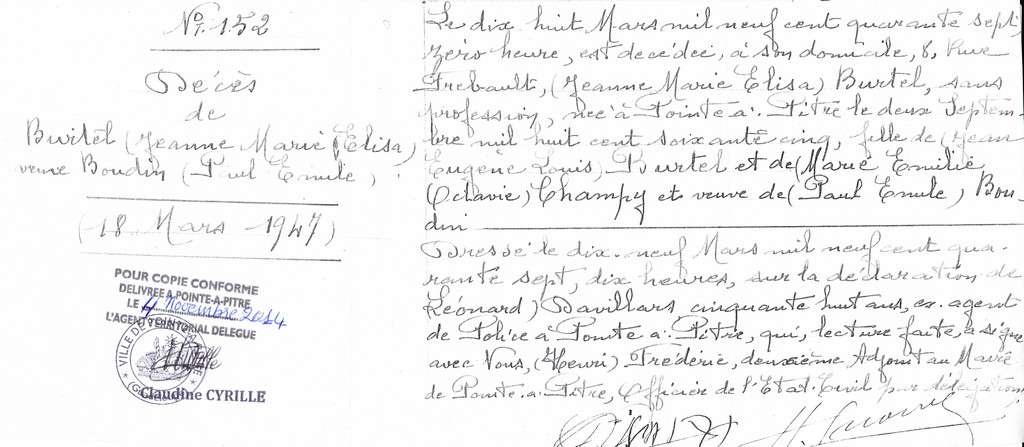 No. 152
Décès
de
Burtel (Jeanne Marie Elisa)
veuve Boudin (Paul Emile)
(18 Mars 1947)
POUR COPIE CONFORME
DELIVREE A POINTE-A-PITRE
LE 4 Novembre 2014
L'AGENT TERRITORIAL DELEGUE
VILLE DE POINTE
Claudine CYRILLE
Le dix huit Mars mil neuf cent quarante sept,
zéro heure, est décédée, à son domicile, 8, Rue
Frébault, (Jeanne Marie Elisa) Burtel, sans
profession, née à Pointe-à-Pitre le deux Septem-
bre mil huit cent soixante cinq, fille de (Jean
Eugène Louis) Burtel et de (Marie Emilie
Octavie) Champy et veuve de (Paul Emile) Bou-
din
Dressé le dix-neuf Mars mil neuf cent qua-
rante sept, dix heures, sur la déclaration de
Léonard) Davillars cinquante huit ans, ex-agent
de Police à Pointe-à-Pitre, qui, lecture faite, a signé
avec Nous, (Henri) Frédéric, deuxième Adjoint au Maire
de Pointe-à-Pitre, Officier de l'Etat-Civil par délégation.